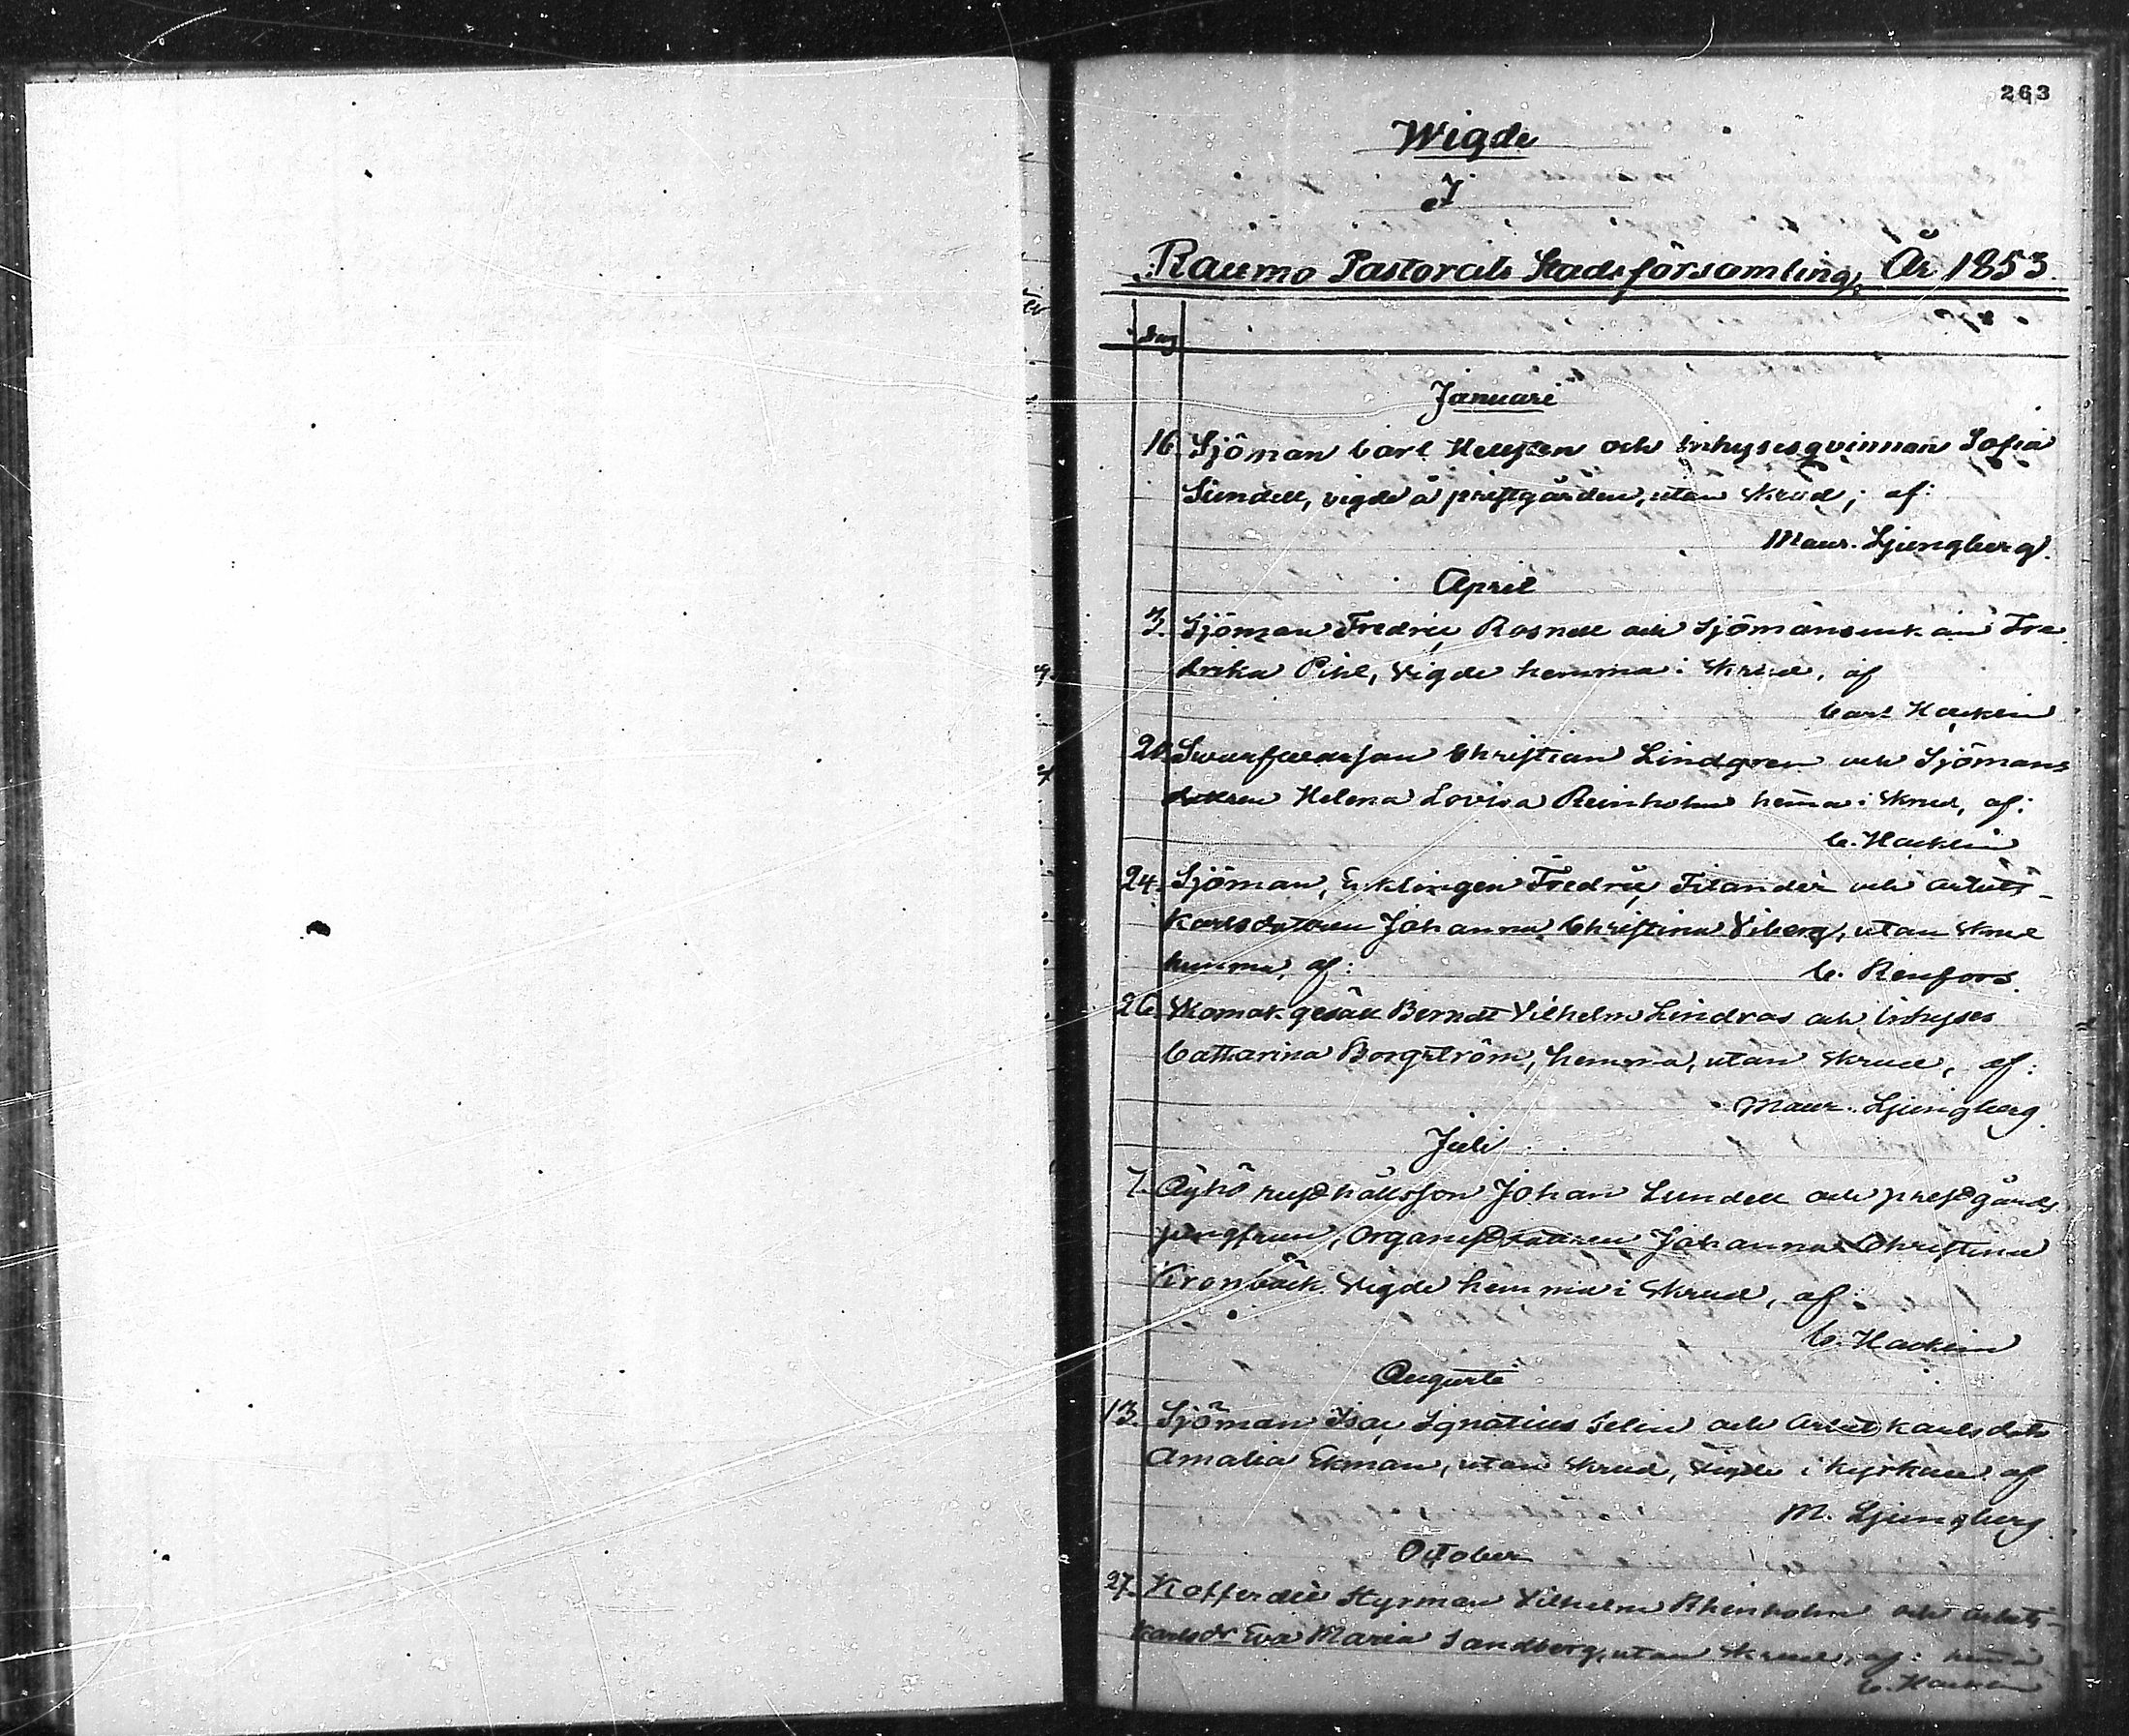 263
Wigde
I
Raumo Pastorats Stadsförsamling, År 1853.
dag
Januari
16. Sjöman Carl Hellsten och inhysesqvinnan Sofia
Sundell, vigde å prestgården, utan skrud, af:
Maur. Ljungberg.
April
3. Sjöman Fredric Rosnell och Sjömansenkan Fre
drika Pihl, vigde hemma i skrud, af
Carl Hacklin
20. Christian Lindgren och Sjömans
dottren Helena Lovisa Reinholm hema i skrud, af:
C. Hacklin
24. Sjöman, Enklingen Fredric Filander och arbets-
karlsdottren Johanna Christina Viberg, utan skrud
hemma, af: C. Renfors.
26. Skomak. gesäll Berndt Vilhelm Lindros och Inhyses
Catharina Borgström, hemma, utan skrud, af:
Maur. Ljungberg.
Juli
7. Äyhö rusthållsson Johan Lundell och prestgårds
jungfrun, Organistdottren Johanna Christina
Kronbäck vigde hemma i skrud, af:
C. Hacklin
Augusti
13. Sjöman Isac Ignatius Selin och Arbetskarlsdotr
Amalia Ekman, utan skrud, vigde i kyrkan af
M. Ljungberg.
October
27. Kofferdie Styrman Vilhelm Rheinholm och arbets-
karlsdr Eva Maria Sandberg, utan skrud, af: hema
C. Hacklin